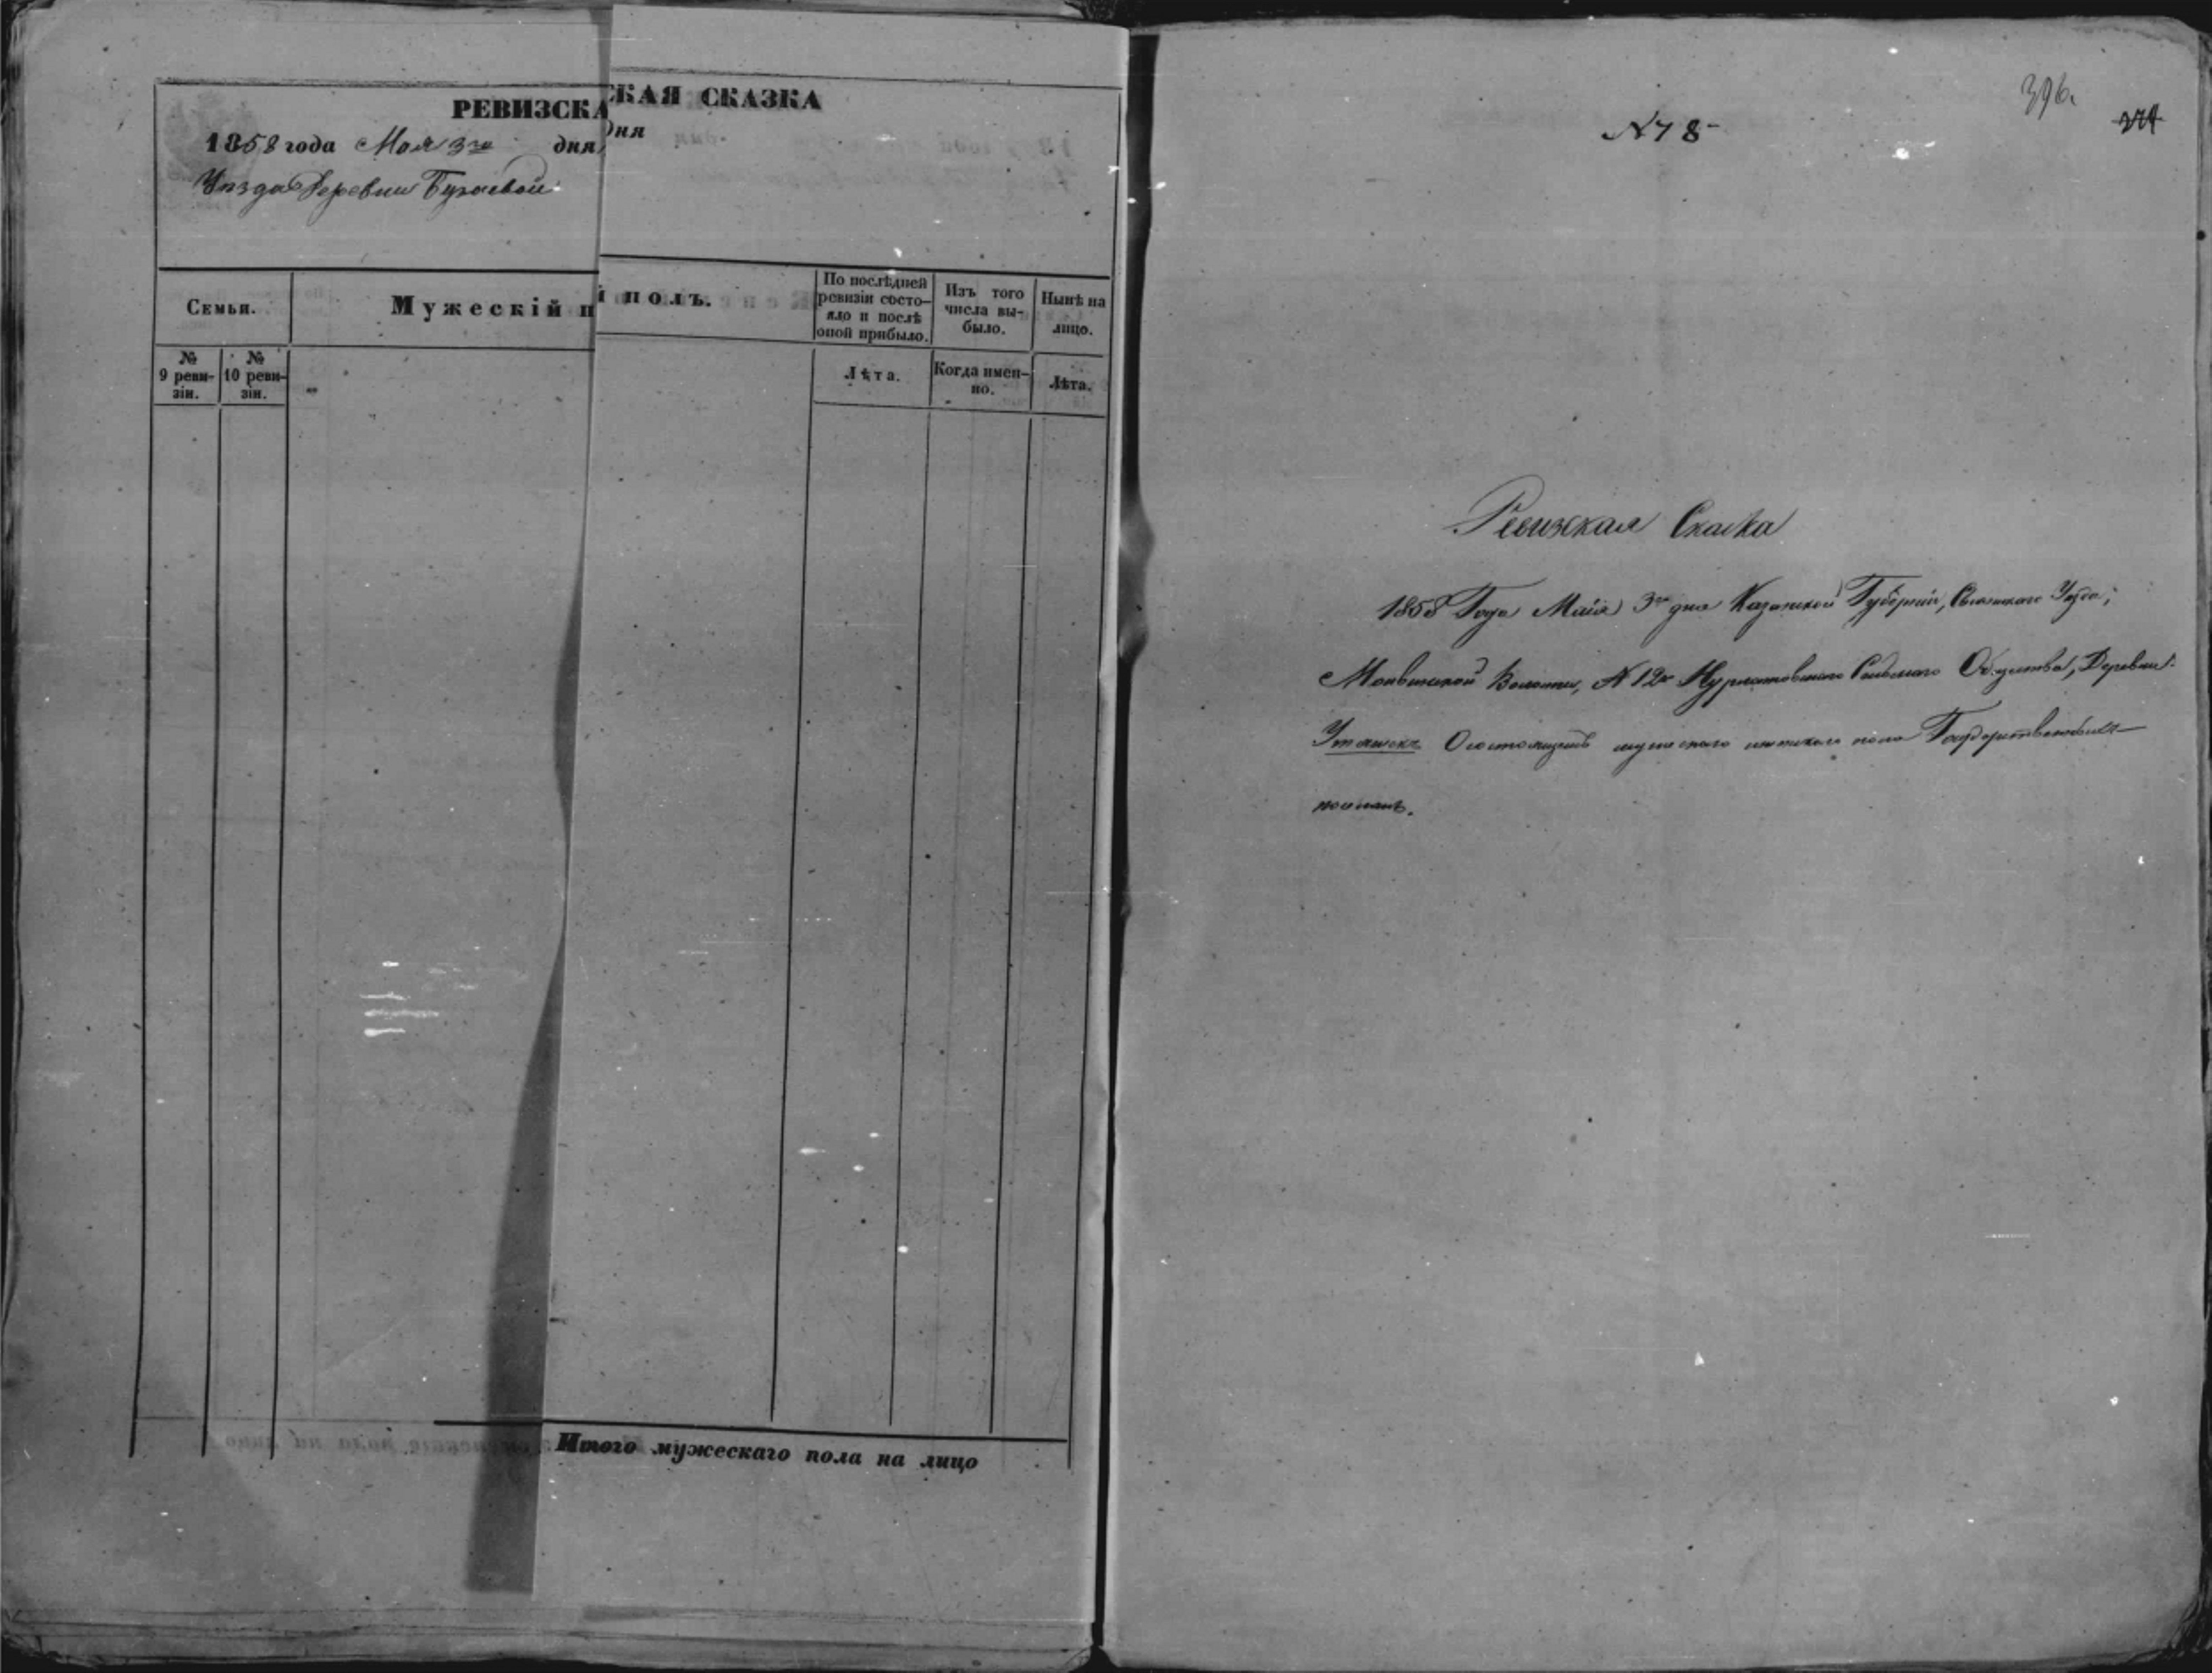 РЕВИЗСКА
КАЯ СКАЗКА
1858 года Мая 3го дня
дня
Уѣзда Деревни Бузаевой
Семьи.
Мужескій п
й полъ.
По послѣдней ревизіи состо-
яло и послѣ
оной прибыло.
Изъ того
числа вы-
было.
Нынѣ на
лицо.
№
9 реви-
зіи.
№
10 реви-
зіи.
Лѣта.
Когда имен-
но.
Лѣта.
Итого мужескаго пола на лицо
396.
N78
Ревизская Сказка
1858 Года Маія 3го дня Казанской Губерніи, Свіяжскаго Уѣзда,
Волости, N 12го Нурлатовскаго Сельскаго Общества, Деревни
О состоящихъ мужескаго и женскаго пола Государственныхъ